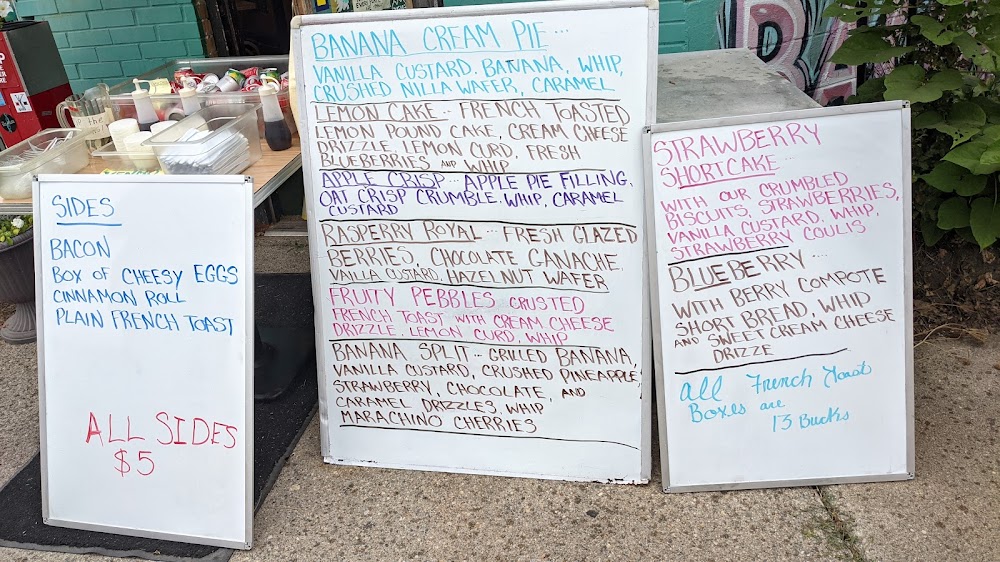 SIDES
BACON
BOX OF CHEESY EGGS
CINNAMON ROLL
PLAIN FRENCH TOAST
ALL SIDES
$5
BANANA CREAM PIE...
VANILLA CUSTARD, BANANA, WHIP,
CRUSHED NILLA WAFER, CARAMEL
LEMON CAKE... FRENCH TOASTED
LEMON POUND CAKE, CREAM CHEESE
DRIZZLE, LEMON CURD, FRESH
BLUEBERRIES AND WHIP
APPLE CRISP... APPLE PIE FILLING,
OAT CRISP CRUMBLE, WHIP, CARAMEL
CUSTARD
RASPERRY ROYAL... FRESH GLAZED
BERRIES, CHOCOLATE GANACHE,
VAILLA CUSTARD, HAZELNUT WAFER
FRUITY PEBBLES CRUSTED
FRENCH TOAST WITH CREAM CHEESE
DRIZZLE, LEMON CURD, WHIP
BANANA SPLIT... GRILLED BANANA,
VANILLA CUSTARD, CRUSHED PINEAPPLE,
STRAWBERRY, CHOCOLATE, AND
CARAMEL DRIZZLES, WHIP
MARACHINO CHERRIES
STRAWBERRY
SHORTCAKE...
WITH OUR CRUMBLED
BISCUITS, STRAWBERRIES,
VANILLA CUSTARD, WHIP,
STRAWBERRY COULIS
BLUEBERRY...
WITH BERRY COMPOTE
SHORT BREAD, WHIP
AND SWEET CREAM CHEESE
DRIZZE
All French Toast
Boxes are
13 Bucks